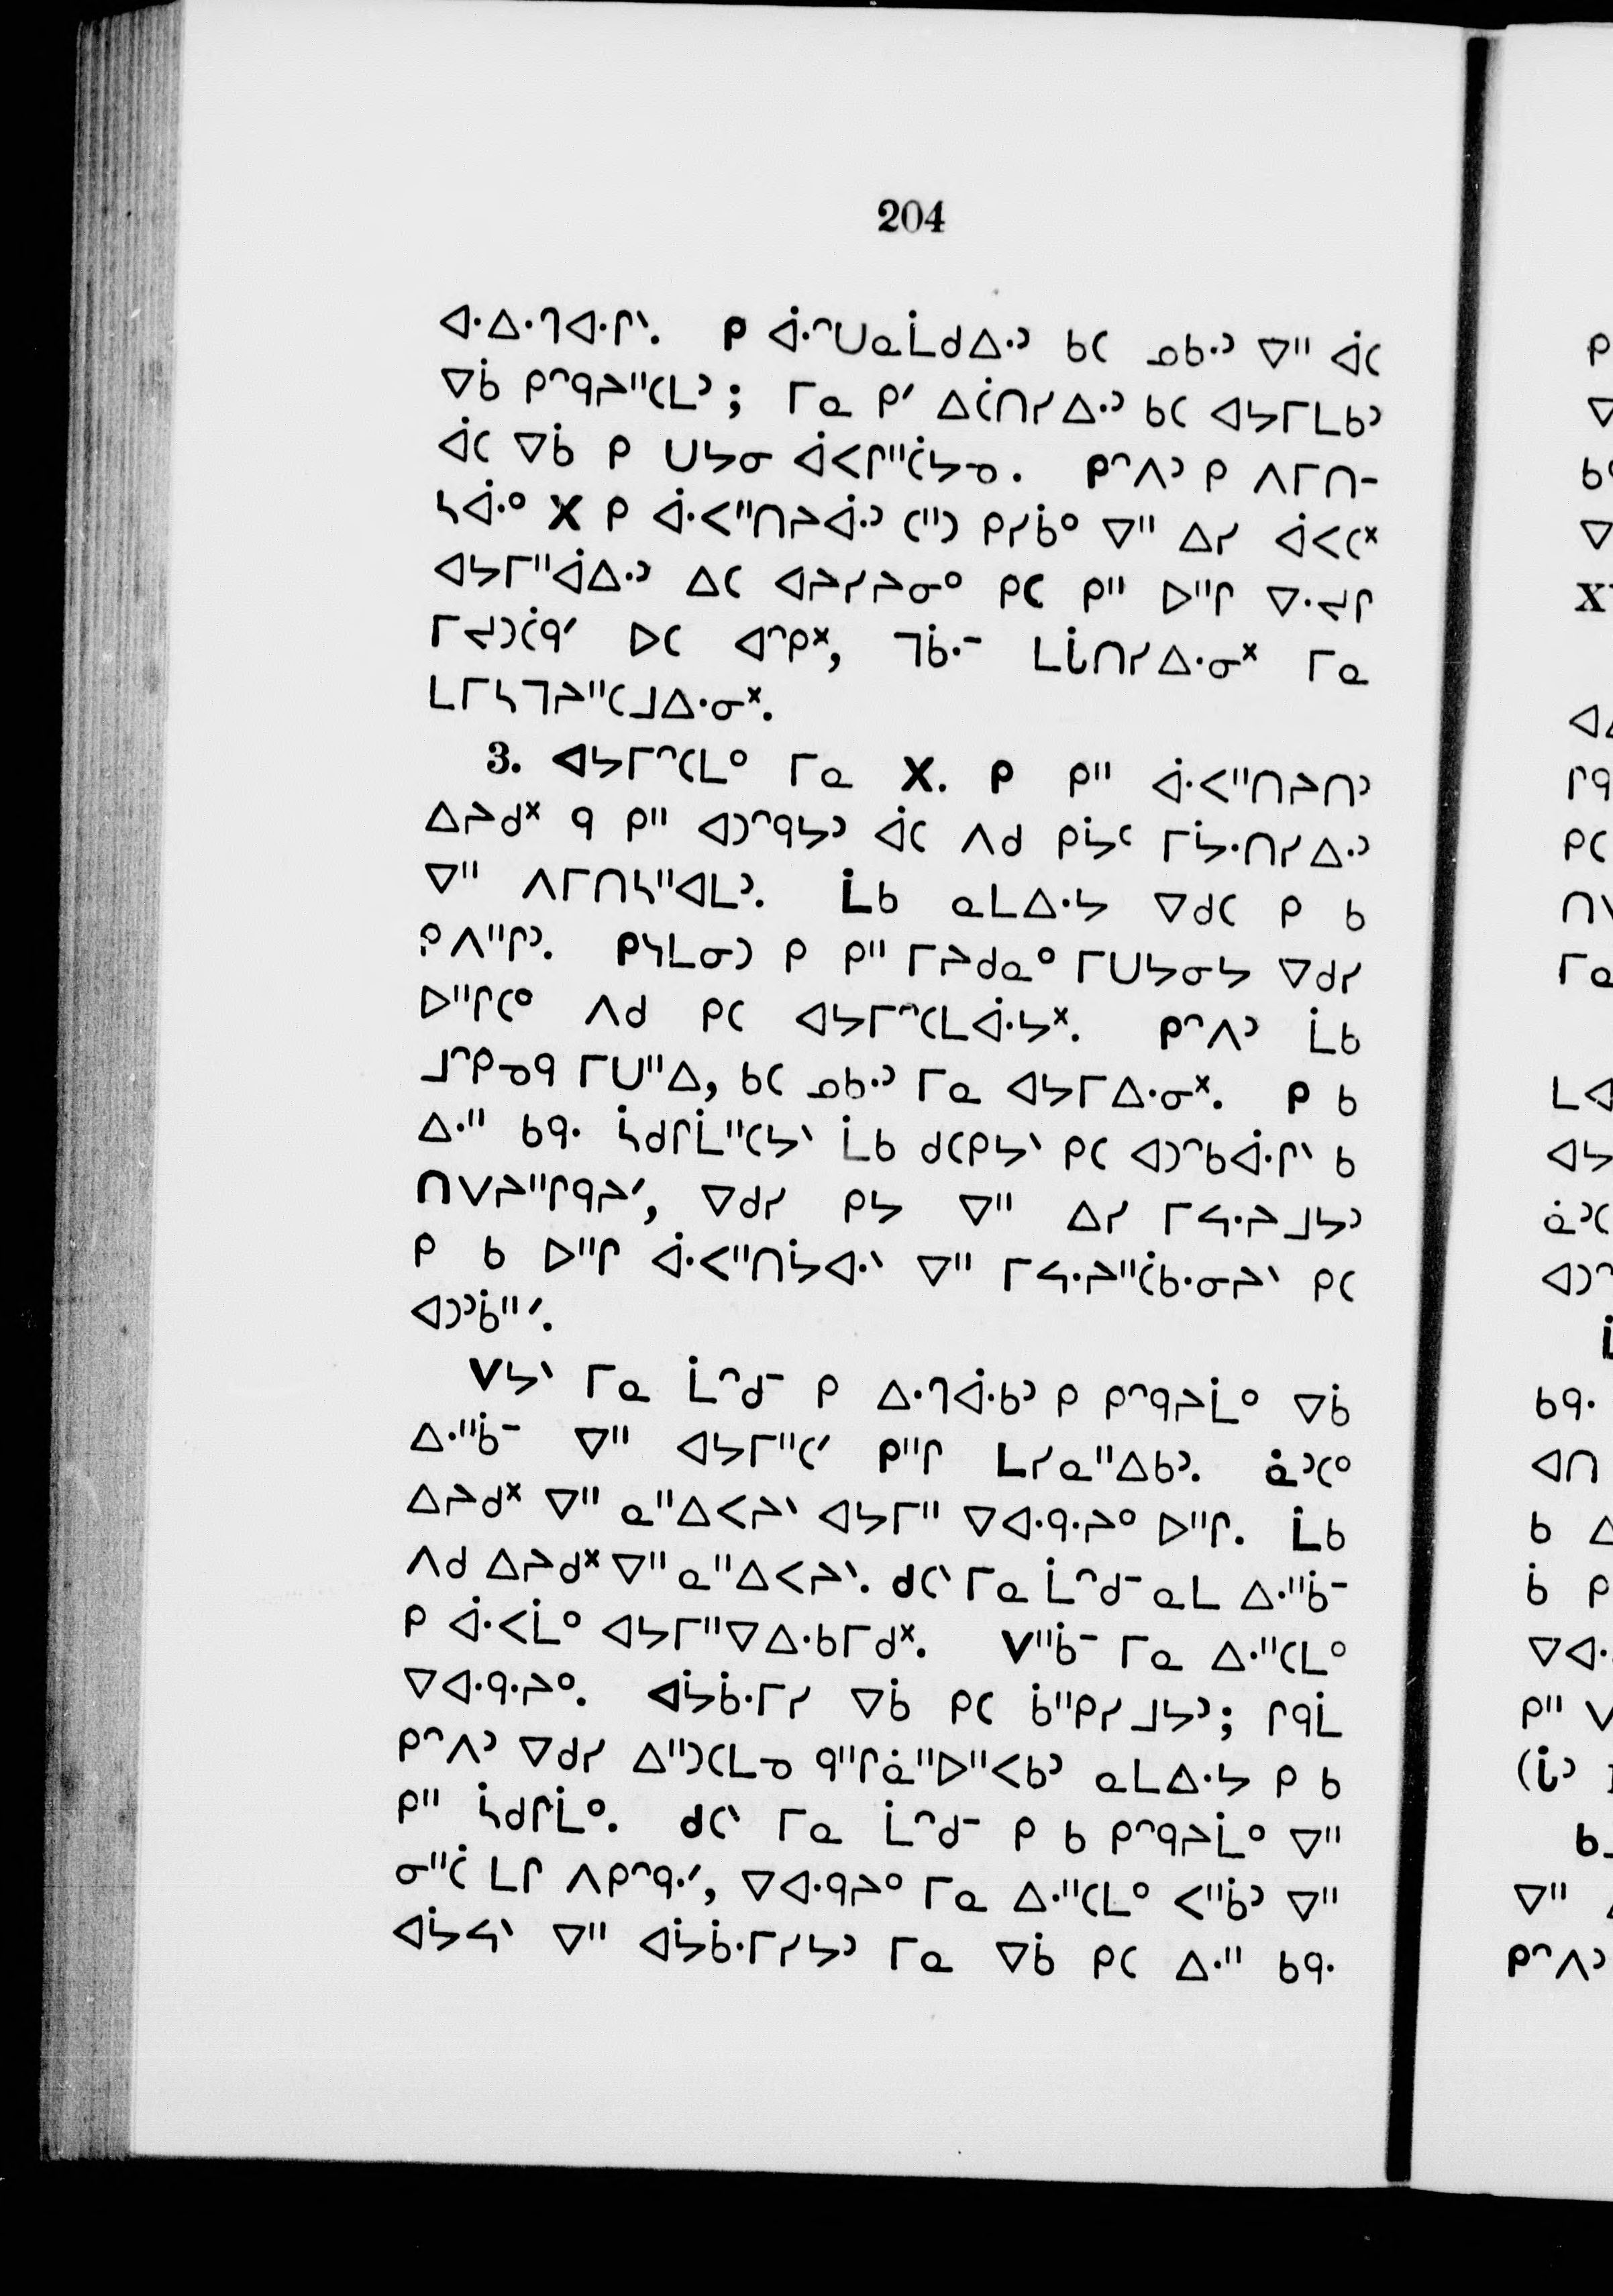 204
ᐊᐧᐃᐧᒉᐊᐧᒋᐠ. ᑭ ᐋᐧᐢᑌᓇᒫᑯᐃᐧᐣ ᑲᑕ ᓄᑲᐧᐣ ᐁᐦ ᐋᑕ
ᐁᑳ ᑭᐢᑫᔨᐦᑕᒪᐣ; ᒥᓇ ᑭᐟ ᐃᑖᑎᓯᐃᐧᐣ ᑲᑕ ᐊᔭᒥᒪᑲᐣ
ᐋᑕ ᐁᑳ ᑭ ᑌᔭᓂ ᐋᐸᒋᐦᑖᔭᓀ. ᑭᐢᐱᐣ ᑭ ᐱᒥᑎ-
ᓴᐋᐧᐤ X ᑭ ᐋᐧᐸᐦᑎᔨᐋᐧᐣ ᑕᐦᑐ ᑭᓯᑳᐤ ᐁᐦ ᐃᓯ ᐋᐸᑕᕽ
ᐊᔭᒥᐦᐋᐃᐧᐣ ᐃᑕ ᐊᔨᓯᔨᓂᐤ ᑭᑕ ᑭᐦ ᐅᐦᒋ ᐁᐧᔪᒋ
ᒥᔪᑖᑫᐟ ᐅᑕ ᐊᐢᑭᕽ, ᒣᑳᐧᐨ ᒪᒑᑎᓯᐃᐧᓂᕽ ᒥᓇ
ᒪᒥᓴᒣᔨᐦᑕᒧᐃᐧᓂᕽ.
3. ᐊᔭᒥᐢᑕᒪᐤ ᒥᓇ X. ᑭ ᑭᐦ ᐋᐧᐸᐦᑎᔨᑎᐣ
ᐃᔨᑯᕽ ᑫ ᑭᐦ ᐊᑐᐢᑫᔭᐣ ᐋᑕ ᐱᑯ ᑭᔮᑦ ᒥᔮᐧᑎᓯᐃᐧᐣ
ᐁᐦ ᐱᒥᑎᓴᐦᐊᒪᐣ. ᒫᑲ ᓇᒪᐃᐧᔭ ᐁᑯᑕ ᑭ ᑲ
ᑭᐱᐦᒋᐣ. ᑭᓴᒪᓂᑐ ᑭ ᑭᐦ ᒥᔨᑯᓇᐤ ᒥᑌᔭᓂᔭ ᐁᑯᓯ
ᐅᐦᒋᑕᐤ ᐱᑯ ᑭᑕ ᐊᔭᒥᐢᑕᒪᐋᐧᔭᕽ. ᑭᐢᐱᐣ ᒫᑲ
ᒧᐢᑭᓀᑫ ᒥᑌᐦᐃ, ᑲᑕ ᓄᑲᐧᐣ ᒥᓇ ᐊᔭᒥᐃᐧᓂᕽ. ᑭ ᑲ
ᐃᐧᐦ ᑲᑫᐧ ᓵᑯᒋᒫᐦᑕᔭᐠ ᒫᑲ ᑯᑕᑭᔭᐠ ᑭᑕ ᐊᑐᐢᑲᐋᐧᒋᐠ ᑲ
ᑎᐯᔨᐦᒋᑫᔨᐟ, ᐁᑯᓯ ᑭᔭ ᐁᐦ ᐃᓯ ᒥᓭᐧᔨᒧᔭᐣ
ᑭ ᑲ ᐅᐦᒋ ᐋᐧᐸᐦᑎᔮᐊᐧᐠ ᐁᐦ ᒥᓭᐧᔨᐦᑖᑲᐧᓂᔨᐠ ᑭᑕ
ᐊᑐᐣᑳᐦᐟ.
ᐯᔭᐠ ᒥᓇ ᒫᐢᑯᐨ ᑭ ᐃᐧᒉᐋᐧᑲᐣ ᑭ ᑭᐢᑫᔨᒫᐤ ᐁᑳ
ᐃᐧᐦᑳᐨ ᐁᐦ ᐊᔭᒥᐦᑕᐟ ᑭᐦᒋ ᒪᓯᓇᐦᐃᑲᐣ. ᓈᐣᑕᐤ
ᐃᔨᑯᕽ ᐁᐦ ᓇᐦᐃᐸᔨᐠ ᐊᔭᒥᐦ ᐁᐊᐧᑫᐧᔨᐤ ᐅᐦᒋ. ᒫᑲ
ᐱᑯ ᐃᔨᑯᕽ ᐁᐦ ᓇᐦᐃᐸᔨᐠ. ᑯᑕᐠ ᒥᓇ ᒫᐢᑯᐨ ᓇᒪ ᐃᐧᐦᑳᐨ
ᑭ ᐋᐧᐸᒫᐤ ᐊᔭᒥᐦᐁᐃᐧᑲᒥᑯᕽ. ᐯᐦᑳᐨ ᒥᓇ ᐃᐧᐦᑕᒪᐤ
ᐁᐊᐧᑫᐧᔨᐤ. ᐊᔮᑳᐧᒥᓯ ᐁᑳ ᑭᑕ ᑳᐦᑭᓯᒧᔭᐣ; ᒋᑫᒫ
ᑭᐢᐱᐣ ᐁᑯᓯ ᐃᐦᑐᑕᒪᓀ ᑫᐦᒋᓈᐦᐅᐦᐸᑲᐣ ᓇᒪᐃᐧᔭ ᑭ ᑲ
ᑭᐦ ᓵᑯᒋᒫᐤ. ᑯᑕᐠ ᒥᓇ ᒫᐢᑯᐨ ᑭ ᑲ ᑭᐢᑫᔨᒫᐤ ᐁᐦ
ᓂᐦᑖ ᒪᒋ ᐱᑭᐢᑫᐧᐟ, ᐁᐊᐧᑫᔨᐤ ᒥᓇ ᐃᐧᐦᑕᒪᐤ ᐸᐦᑳᐣ ᐁᐦ
ᐊᔮᓭᐠ ᐁᐦ ᐊᔮᑳᐧᒥᓯᔭᐣ ᒥᓇ ᐁᑳ ᑭᑕ ᐃᐧᐦ ᑲᑫᐧ